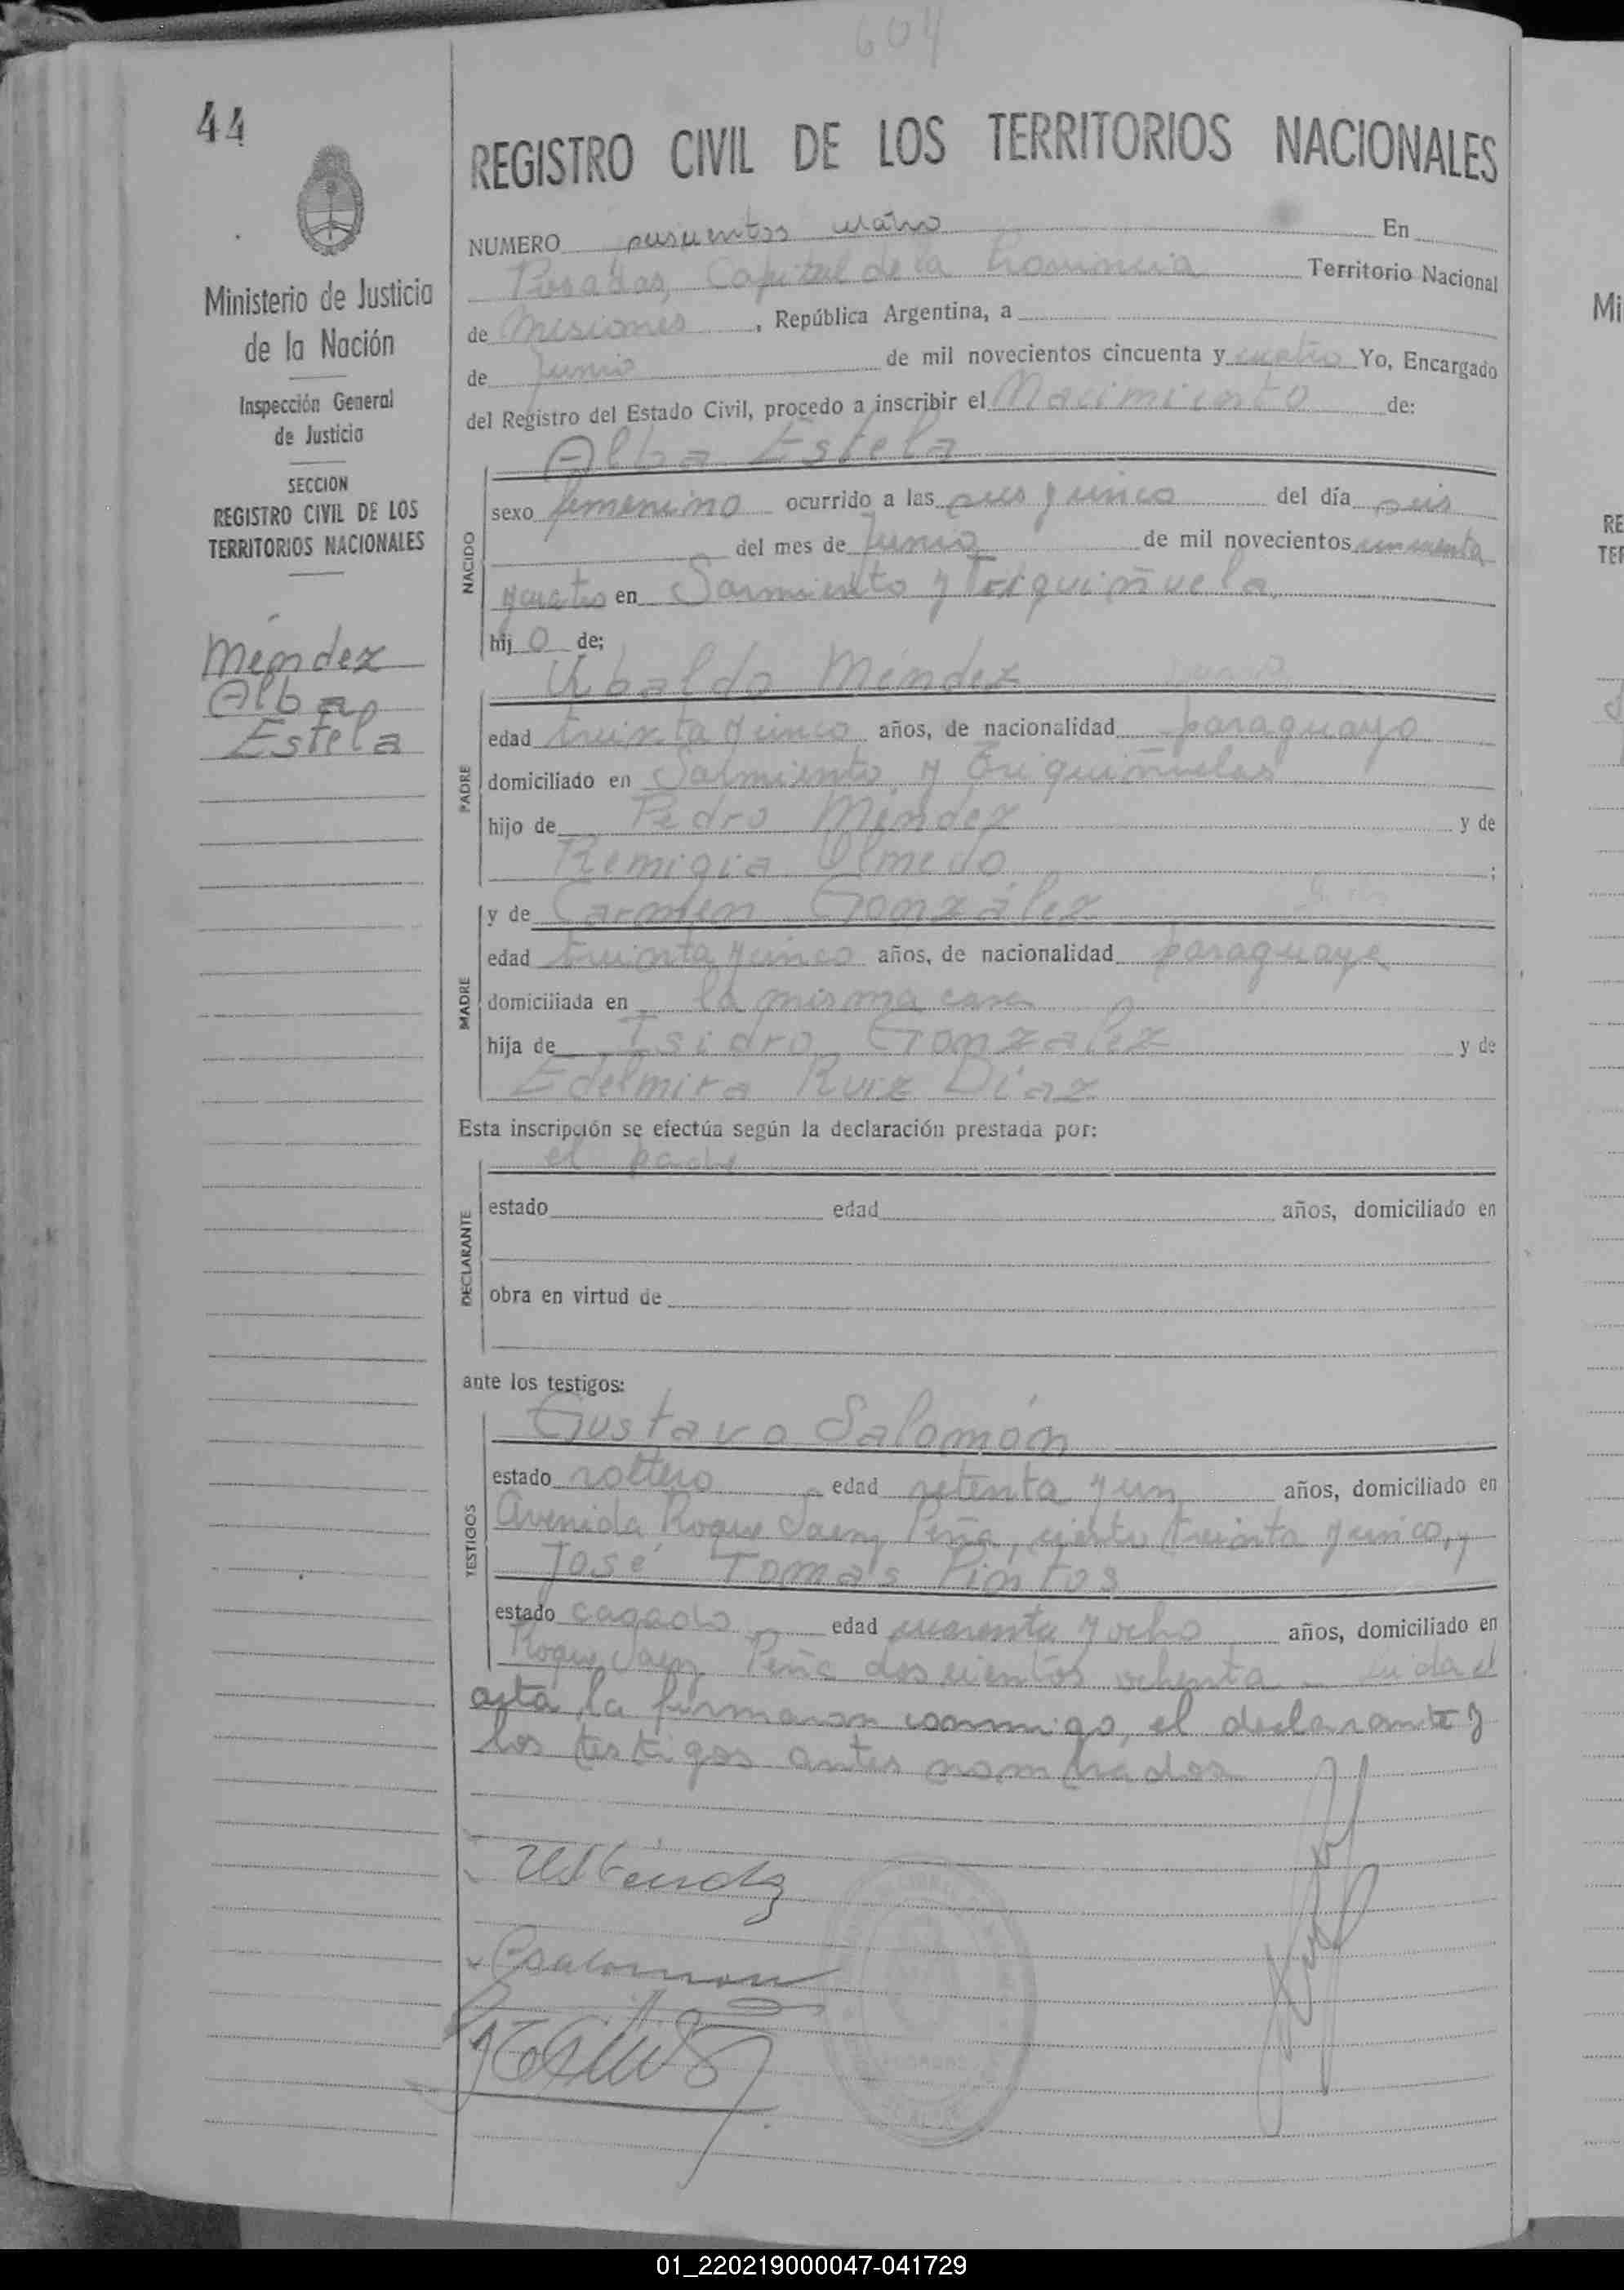 604
44
REGISTRO CIVIL DE LOS TERRITORIOS NACIONALES
Ministerio de Justicia
de la Nación
Inspección General
de Justicia
SECCION
REGISTRO CIVIL DE LOS
TERRITORIOS NACIONALES
Méndez
Alba
Estela
NUMERO seiscientos cuatro En
Posadas, Capital de la Provincia Territorio Nacional
de Misiones, República Argentina, a
de Junio de mil novecientos cincuenta y cuatro Yo, Encargado
del Registro del Estado Civil, procedo a inscribir el Nacimiento de:
Alba Estela
NACIDO
sexo femenino ocurrido a las seis y cinco del día seis
del mes de Junio de mil novecientos cincuenta
y cuatro en Sarmiento y
hij o de;
Ubaldo Méndez
PADRE
edad treinta y cinco años, de nacionalidad paraguayo
domiciliado en Sarmiento y
hijo de Pedro Méndez y de
Remigia Olmedo ;
MADRE
y de Carmen González
edad treinta y cinco años, de nacionalidad paraguaya
domiciliada en la misma casa
hija de Isidro González y de
Edelmira Ruiz Diaz
Esta inscripción se efectúa según la declaración prestada por:
el padre
DECLARANTE
estado edad años, domiciliado en
obra en virtud de
ante los testigos:
Gustavo Salomón
TESTIGOS
estado soltero edad setenta y un años, domiciliado en
Avenida Roque Saenz Peña, ciento treinta y cinco, y
José Tomás Pintos
estado casado edad cuarenta y ocho años, domiciliado en
Roque Saenz Peña doscientos ochenta - Leida el
acta, la firmaron conmigo, el declarante y
los testigos antes nombrados
GSalomon
Mi
RE
TER
01_220219000047-041729